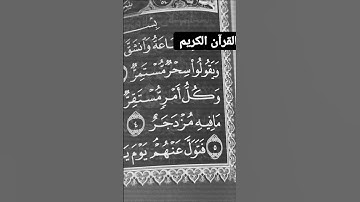 بِسْ
القرآن الكريم
اعَةُ وَٱنشَقَّ
وَيَقُولُوا۟ سِحْرٌ مُّسْتَمِرٌّ
وَكُلُّ أَمْرٍ مُّسْتَقِرٌّ
مَا فِيهِ مُزْدَجَرٌ ٤
٥ فَتَوَلَّ عَنْهُمْ يَوْمَ يَ